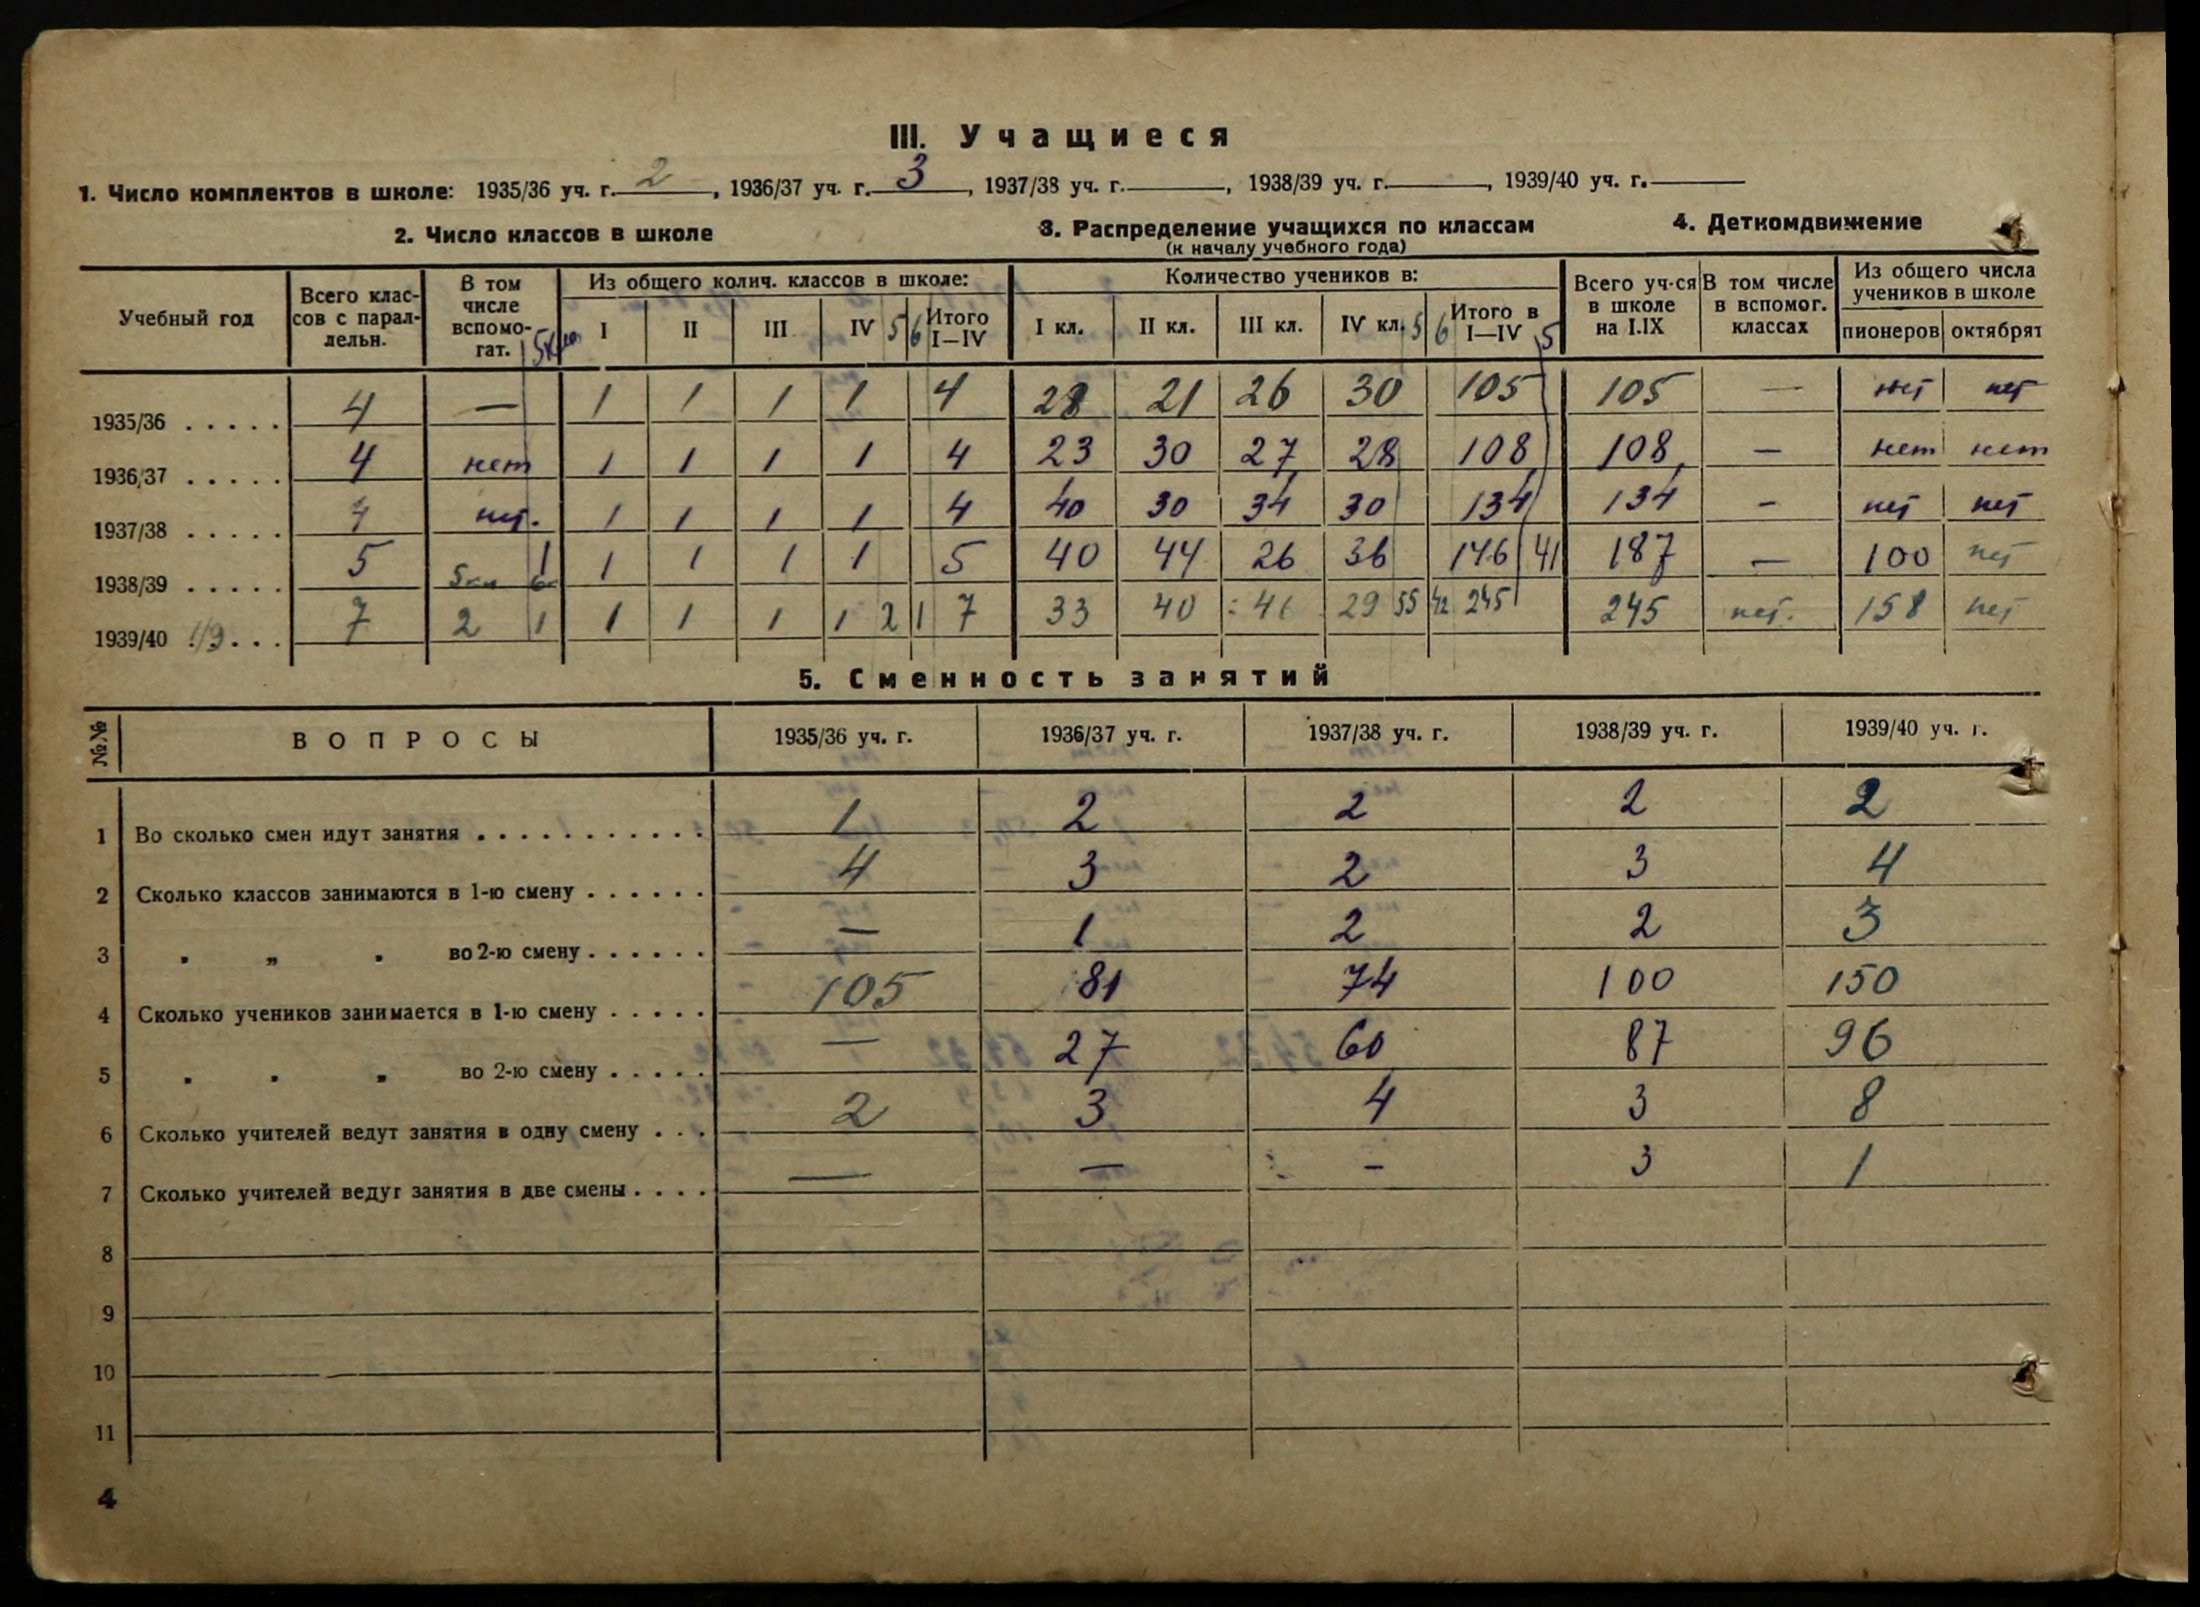 III. Учащиеся
1. Число комплектов в школе: 1935/36 уч. г. 2, 1936/37 уч. г. 3, 1937/38 уч. г. , 1938/39 уч. г. , 1939/40 уч. г.
2. Число классов в школе
3. Распределение учащихся по классам
(к началу учебного года)
4. Деткомдвижение
Учебный год
Всего клас-
сов с парал-
лельн.
В том
числе
вспомо-
гат.
Из общего колич. классов в школе:
I II III IV 5 6 Итого
I—IV
Количество учеников в:
I кл. II кл. III кл. IV кл. 5 6 Итого в
I—IV 5
Всего уч-ся
в школе
на I.IX
В том числе
в вспомог.
классах
Из общего числа
учеников в школе
пионеров октябрят
1935/36 . . . . . 4 — 1 1 1 1 4 28 21 26 30 105 105 — нет нет
1936/37 . . . . . 4 нет 1 1 1 1 4 23 30 27 28 108 108 — нет нет
1937/38 . . . . . 4 нет. 1 1 1 1 4 40 30 34 30 134 134 - нет нет
1938/39 . . . . . 5 1 1 1 1 1 5 40 44 26 36 146 41 187 — 100 нет
5кл 6к
1939/40 1/9 . . . 7 2 1 1 1 1 1 2 1 7 33 40 46 29 55 42 245 245 нет. 158 нет
5. Сменность занятий
№№ ВОПРОСЫ 1935/36 уч. г. 1936/37 уч. г. 1937/38 уч. г. 1938/39 уч. г. 1939/40 уч. г.
1 Во сколько смен идут занятия . . . . . . . . . . . 1 2 2 2 2
2 Сколько классов занимаются в 1-ю смену . . . . . . 4 3 2 3 4
3 „ „ „ во 2-ю смену . . . . . . — 1 2 2 3
4 Сколько учеников занимается в 1-ю смену . . . . . 105 81 74 100 150
5 „ „ „ во 2-ю смену . . . . . — 27 60 87 96
6 Сколько учителей ведут занятия в одну смену . . . 2 3 4 3 8
7 Сколько учителей ведут занятия в две смены . . . . — — - 3 1
8
9
10
11
4